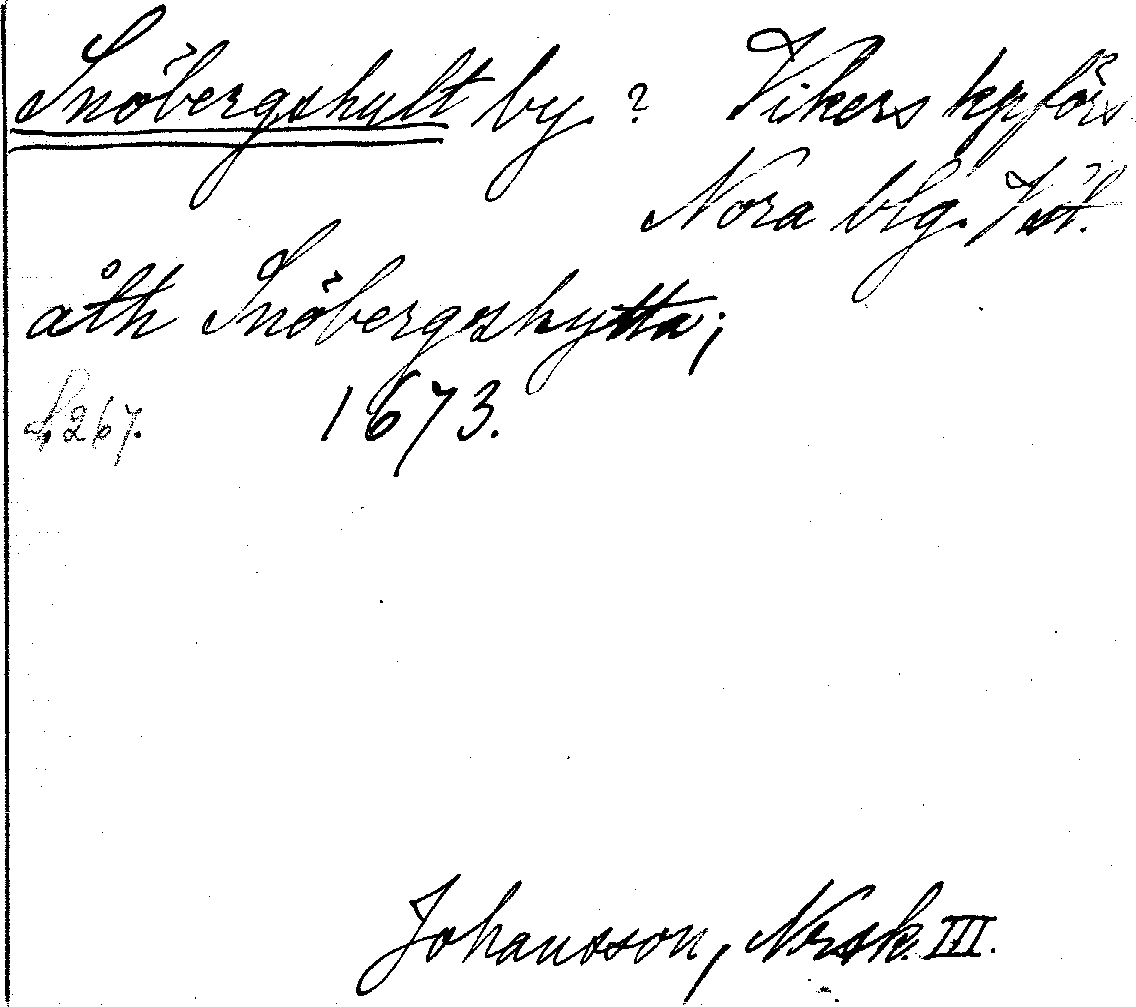 Snöbergshult by. ? Vikers kpförs.
Nora blg. Vstl.
åth Snöbergshytta;
S. 267. 1673.
Johansson, Norsk. III.